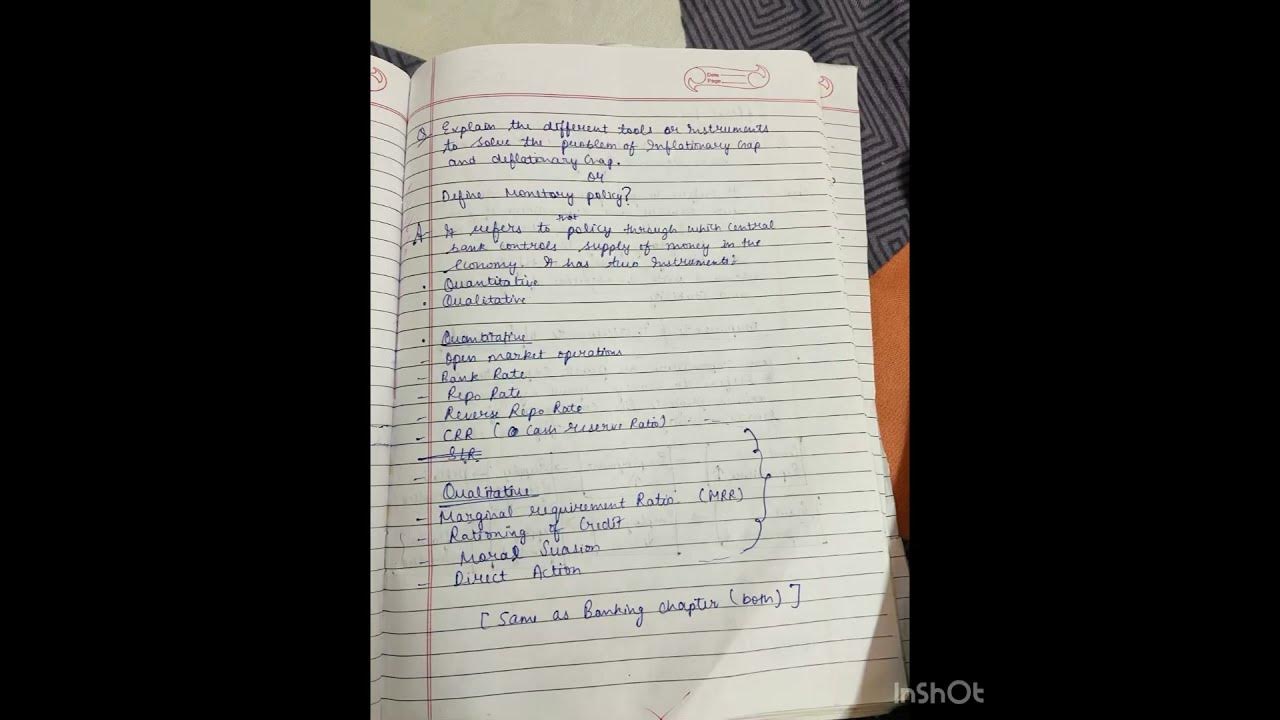 Date
Page
Q Explain the different tools or instruments
to solve the problem of Inflationary Gap
and deflationary Gap.
Or
Define Monetary policy?
A It refers to that policy through which central
bank controls supply of money in the
economy. It has two Instruments:
• Quantitative
• Qualitative
• Quantitative
- Open market operations
- Bank Rate
- Repo Rate
- Reverse Repo Rate
- CRR (Cash reserve Ratio)
- SLR
Qualitative
- Marginal requirement Ratio (MRR)
- Rationing of Credit
- Moral Suasion
- Direct Action
[ Same as Banking chapter (both) ]
InShOt